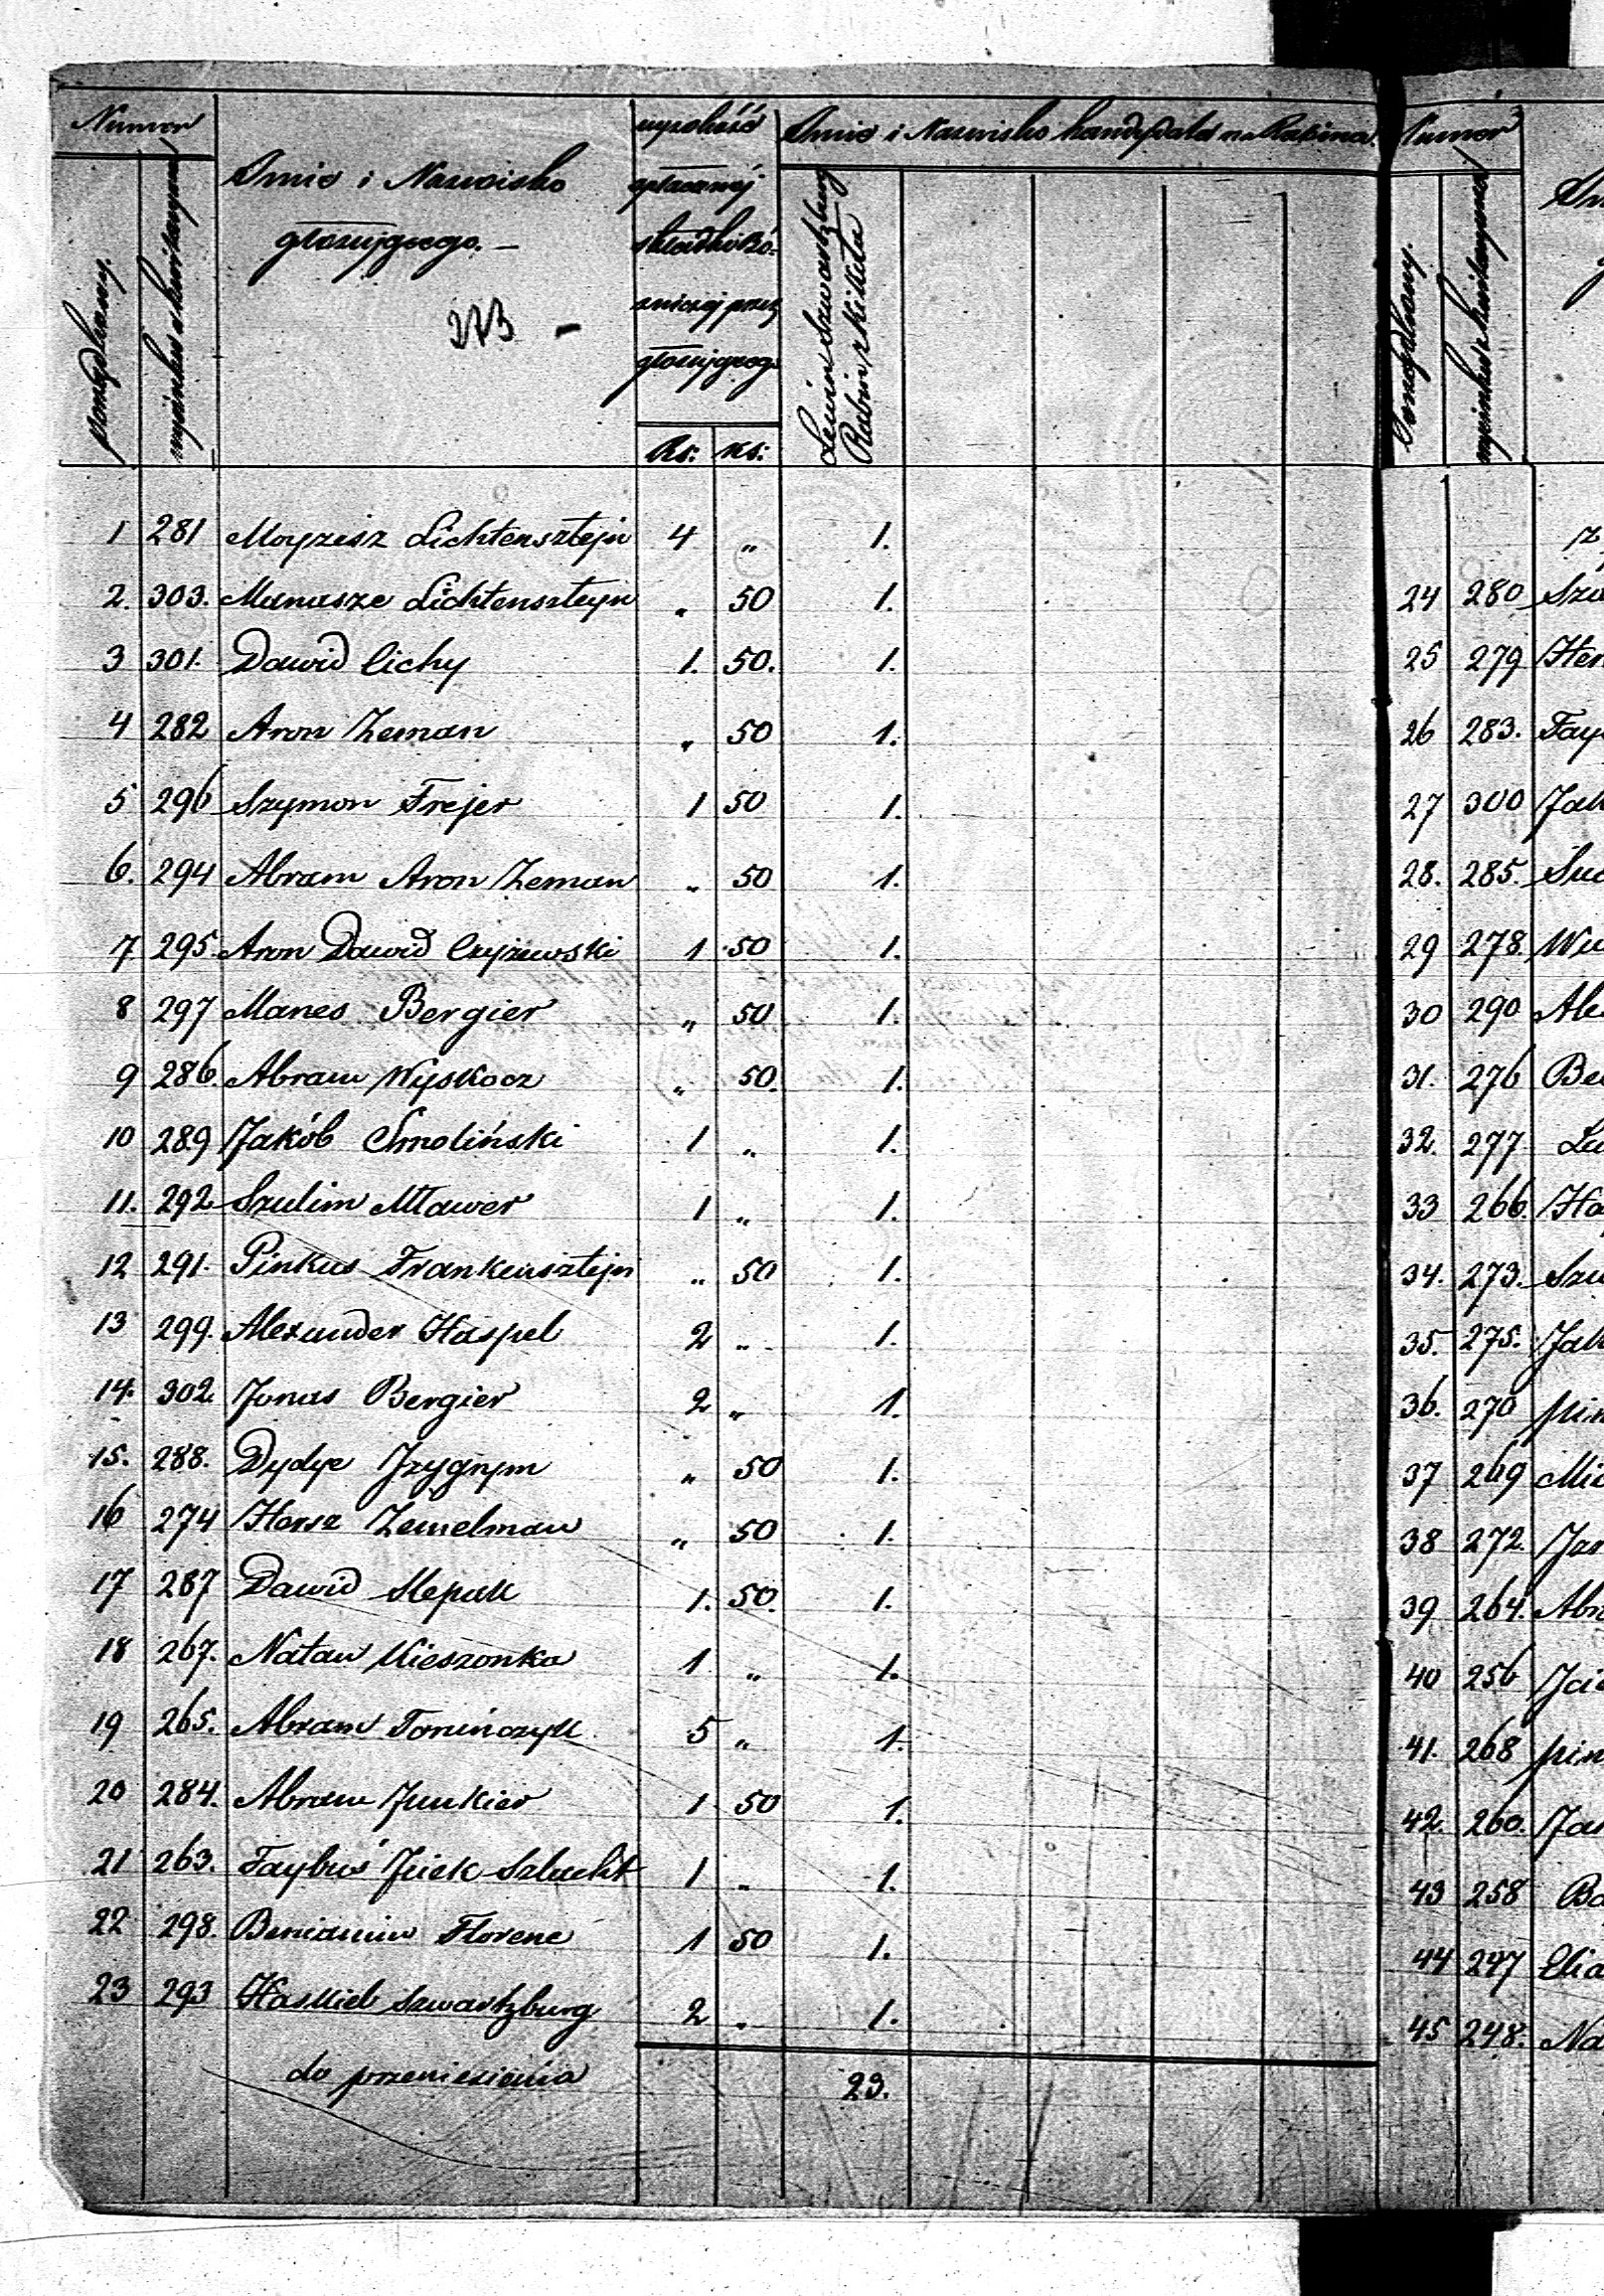 Numer
porządkowy.
Imie i Nazwisko
głosującego. —
273 -
wysokość
opłacanéj
składki Bó-
zniczéj przez
głosującego
Rs: ks:
Imie i Nazwisko kandydata na Rabina.
Lewin Szwartzburg
Rabin z Kikoła
1 281 Moyzesz Lichtensztejn 4 „ 1.
2. 303. Manasze Lichtensztejn „ 50 1.
3 301. Dawid Cichy 1. 50. 1.
4 282 Aron Zeman „ 50 1.
5 296 Szymon Frejer 1 50 1.
6. 294 Abram Aron Zeman „ 50 1.
7 295. Aron Dawid Czyżewski 1 50 1.
8 297 Manes Bergier „ 50 1.
9 286. Abram Wyskocz „ 50. 1.
10 289 Jakób Smoliński 1 „ 1.
11. 292 Szulim Mławer 1 „ 1.
12 291. Pinkus Frankensztejn „ 50 1.
13 299. Alexander Haspel 2 „ 1.
14. 302 Jonas Bergier 2 „ 1.
15. 288. Dydye Jzygrym „ 50 1.
16 274 Hersz Zemelman „ 50 1.
17 287 Dawid Slepak 1. 50. 1.
18 267. Natan Kieszonka 1 „ 1.
19 265. Abram Tonińczyk 5 „ 1.
20 284. Abram Junkier 1 50 1.
21 263. Taybuś Jcek Szlacht 1 „ 1.
22 298. Beniamin Florenc 1 50 1.
23 293 Haskiel Szwartzburg 2 „ 1.
do przeniesienia 23.
Numer
Porządkowy.
z
24 280 Szu
25 279 Her
26 283. Fay
27 300 Jak
28. 285.
29 278.
30 290 Ale
31. 276 Be
32. 277
33 266. Ha
34. 273. Szu
35. 275. Jak
36. 270 Pin
37 269
38 272.
39 264. Abr
40 256
41. 268 Pin
42. 260.
43 258
44 247 Elia
45 248. Na